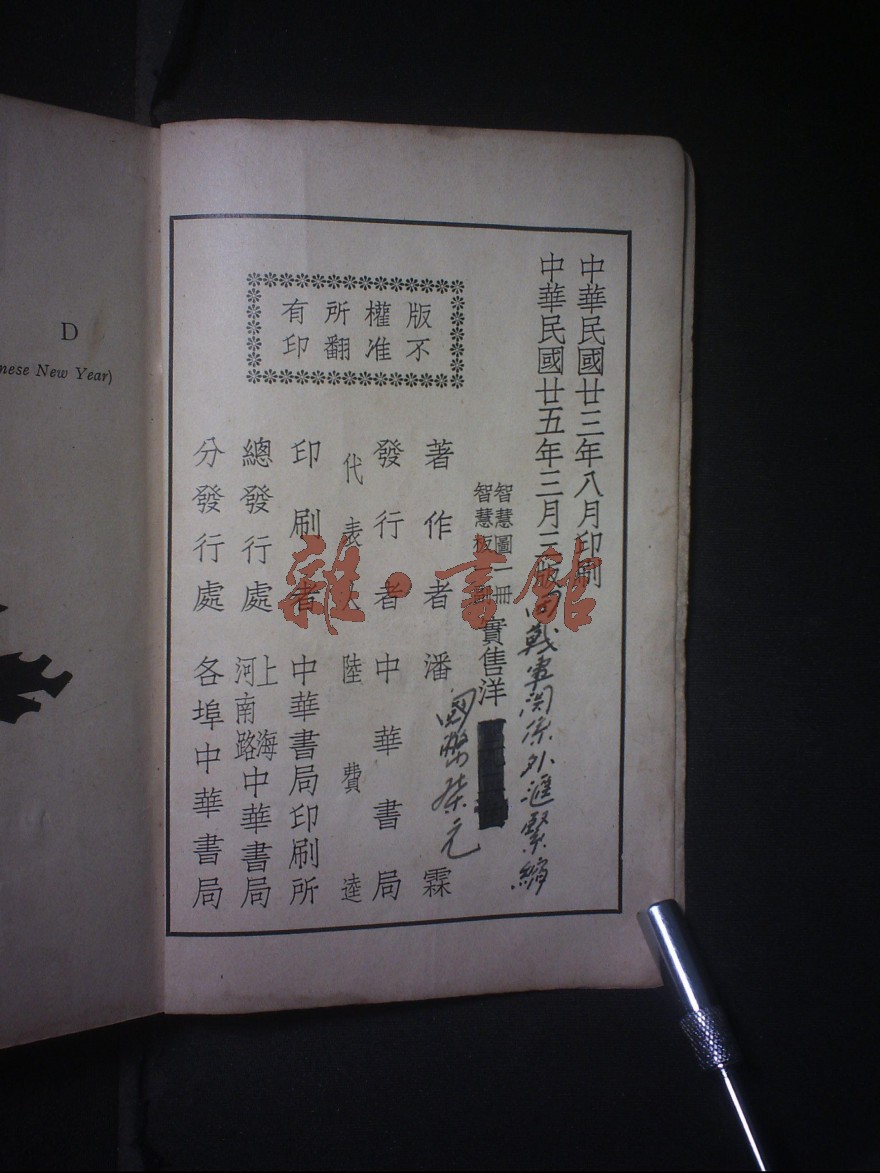 中華民國廿三年八月印刷
中華民國廿五年三月三版
因戰事関係外滙緊縮
智慧圖一冊
智慧板一副
實售洋
國幣柒元
著作者 潘霖
發行者 中華書局
代表人 陸費逵
印刷者 中華書局印刷所
總發行處 上海河南路 中華書局
分發行處 各埠中華書局
版權所有
不准翻印
雜·書館
D
nese New Year)